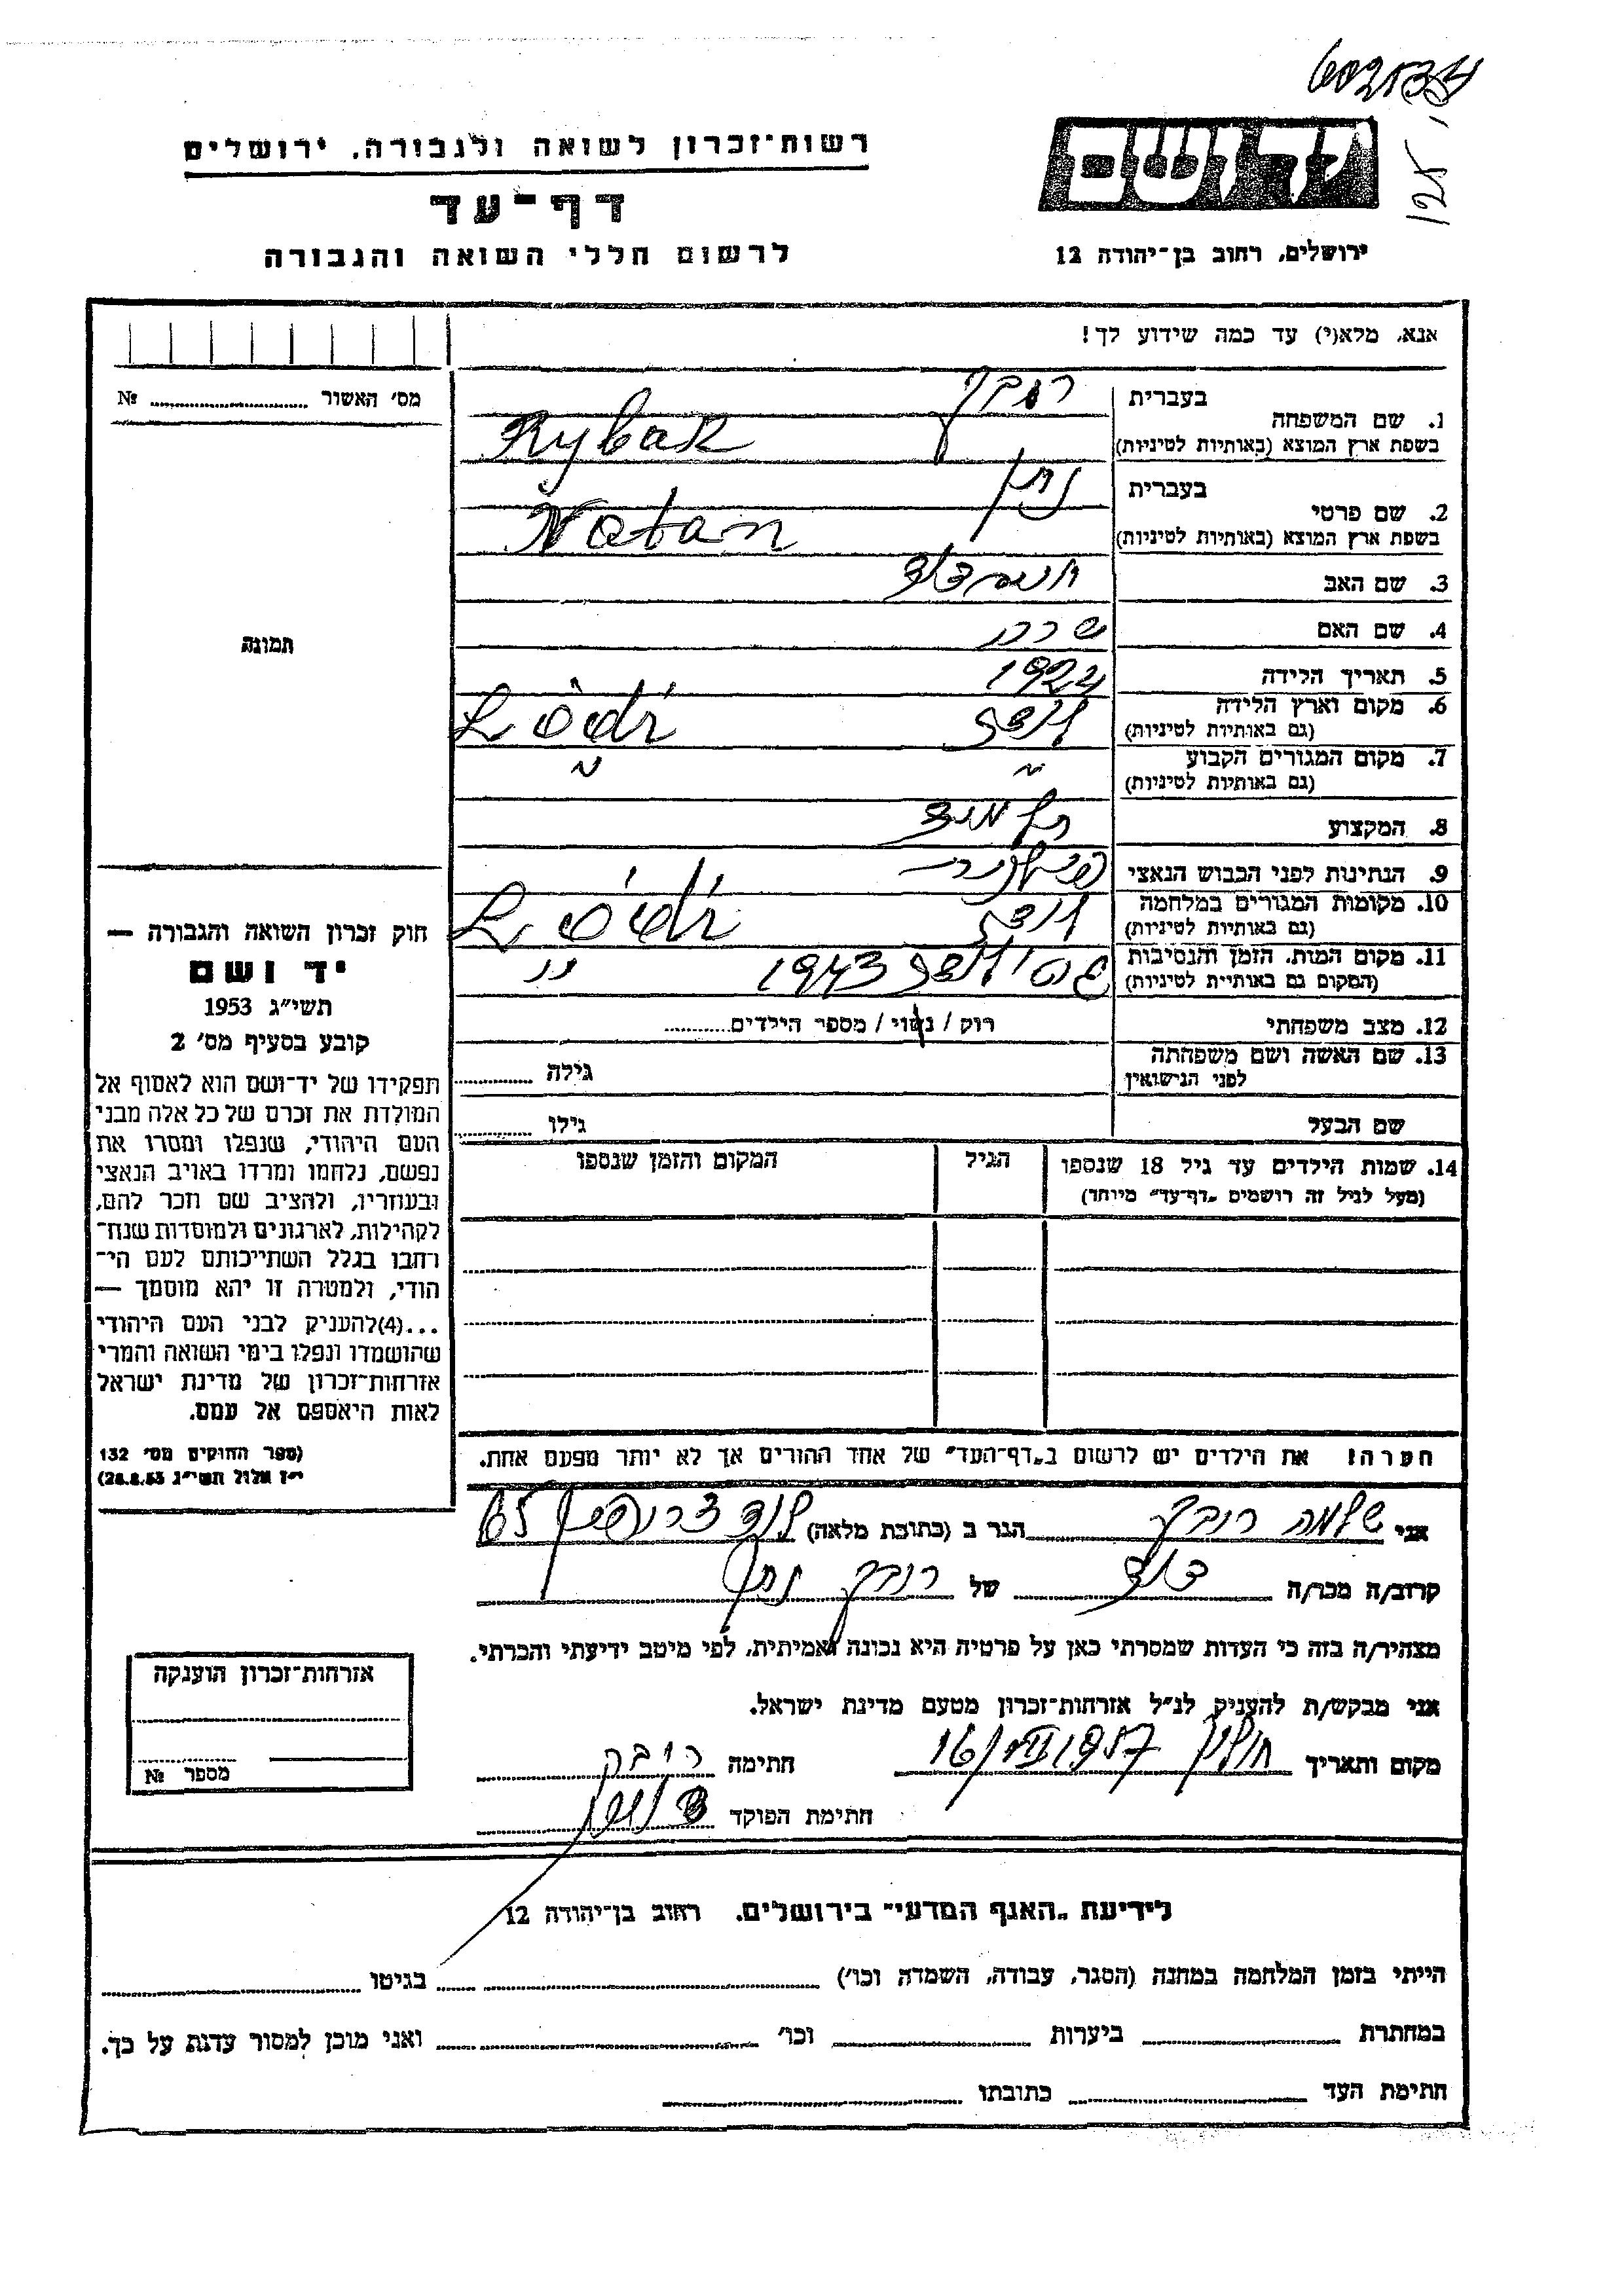 602134
125
יד ושם
ירושלים, רחוב בן־יהודה 12
רשות־זכרון לשואה ולגבורה, ירושלים
דף־עד
לרשום חללי השואה והגבורה
אנא, מלא(י) עד כמה שידוע לך!
מס׳ האשור № 
1. שם המשפחה
בעברית
ריבק
בשפת ארץ המוצא (באותיות לטיניות)
Rybak
2. שם פרטי
בעברית
נתן
בשפת ארץ המוצא (באותיות לטיניות)
Natan
3. שם האב
4. שם האם שרה
5. תאריך הלידה 1922
6. מקום וארץ הלידה לודז Łódź
(גם באותיות לטיניות)
7. מקום המגורים הקבוע
(גם באותיות לטיניות)
8. המקצוע תלמיד
9. הנתינות לפני הכבוש הנאצי פולנית
10. מקומות המגורים במלחמה לודז Łódź
(גם באותיות לטיניות)
11. מקום המות, הזמן והנסיבות גטו לודז 1943
(המקום גם באותיית לטיניות)
12. מצב משפחתי רוק / נשוי / מספר הילדים
13. שם האשה ושם משפחתה
לפני הנישואין
גילה
שם הבעל גילו
14. שמות הילדים עד גיל 18 שנספו הגיל המקום והזמן שנספו
(מעל לגיל זה רושמים „דף־עד״ מיוחד)
תמונה
חוק זכרון השואה והגבורה —
יד ושם
תשי״ג 1953
קובע בסעיף מס׳ 2
תפקידו של יד־ושם הוא לאסוף אל
המולדת את זכרם של כל אלה מבני
העם היהודי, שנפלו ומסרו את
נפשם, נלחמו ומרדו באויב הנאצי
ובעוזריו, ולהציב שם וזכר להם,
לקהילות, לארגונים ולמוסדות שנח־
רחבו בגלל השתייכותם לעם הי־
הודי, ולמטרה זו יהא מוסמך —
...(4)להעניק לבני העם היהודי
שהושמדו ונפלו בימי השואה והמרי
אזרחות־זכרון של מדינת ישראל
לאות היאספם אל עמם.
(ספר החוקים מס׳ 132
י״ז אלול תשי״ג 28.8.53)
הערה! את הילדים יש לרשום ב„דף־העד״ של אחד ההורים אך לא יותר מפעם אחת.
אני שלמה ריבק הגר ב (כתובת מלאה) לוד צריפין 65
קרוב/ה מכר/ה דוד של ריבק נתן
מצהיר/ה בזה כי העדות שמסרתי כאן על פרטיה היא נכונה ואמיתית, לפי מיטב ידיעתי והכרתי.
אני מבקש/ת להעניק לנ״ל אזרחות־זכרון מטעם מדינת ישראל.
מקום ותאריך חולון חתימה ריבק
חתימת הפוקד
אזרחות־זכרון הוענקה
מספר №
לידיעת „האגף המדעי״ בירושלים, רחוב בן־יהודה 12
הייתי בזמן המלחמה במחנה (הסגר, עבודה, השמדה וכו׳) בגיטו
במחתרת ביערות וכו׳ ואני מוכן למסור עדות על כך.
חתימת העד כתובתו